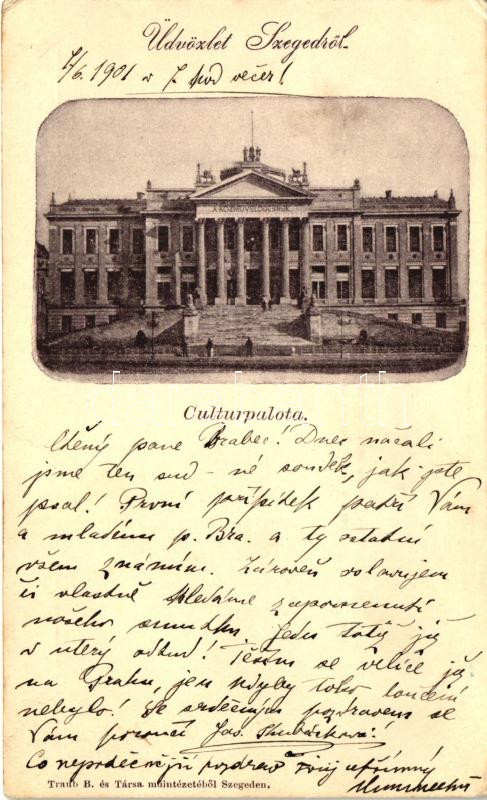 Üdvözlet Szegedről.
4/6. 1901 v 7 hod večer!
A KÖZMŰVELŐDÉSNEK
Culturpalota.
Ctěný pane Brabec! Dnes načali
jsme ten sud - né soudek, jak jste
psal! První přípitek patří Vám
a mladému p. Bra. a ty ostatní
všem známým. Zároveň oslavujem
či vlastně hledáme zapomenutí
našeho smutku. Jedu totiž již
v úterý odtud! Těším se velice již
na Prahu, jen kdyby toho loučení
nebylo! Se srdečným pozdravem se
Vám poroučí Jos.
Co nejsrdečnější pozdrav Svůj upřímný
Traub B. és Társa műintézetéből Szegeden.